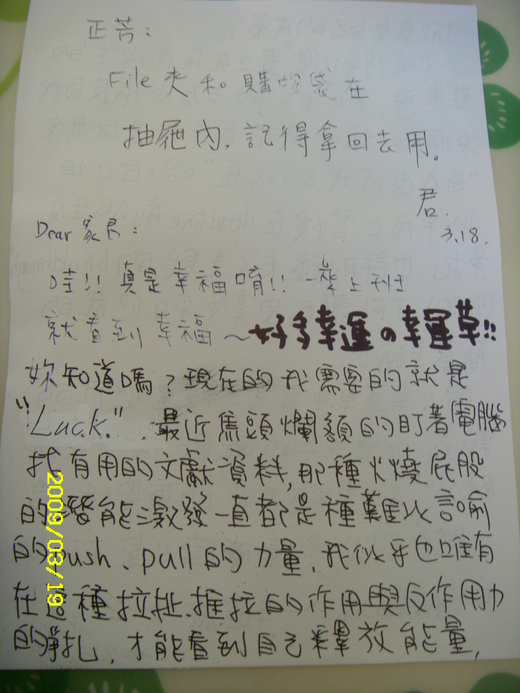 正芳：
File 夾和購物袋在
抽屜內，記得拿回去用。
君.
3.18.
Dear 家君：
哇!! 真是幸福唷!! 一來上班
就看到幸福～好多幸運の幸運草!!
妳知道嗎？現在的我需要的就是
"Luck."，最近焦頭爛額的盯著電腦
找有用的文獻資料，那種火燒屁股
的潛能激發一直都是種難以言喻
的push、pull的力量，我似乎也唯有
在這種拉扯、推拉的作用與反作用力
的掙扎，才能看到自己釋放能量，
2009/03/19